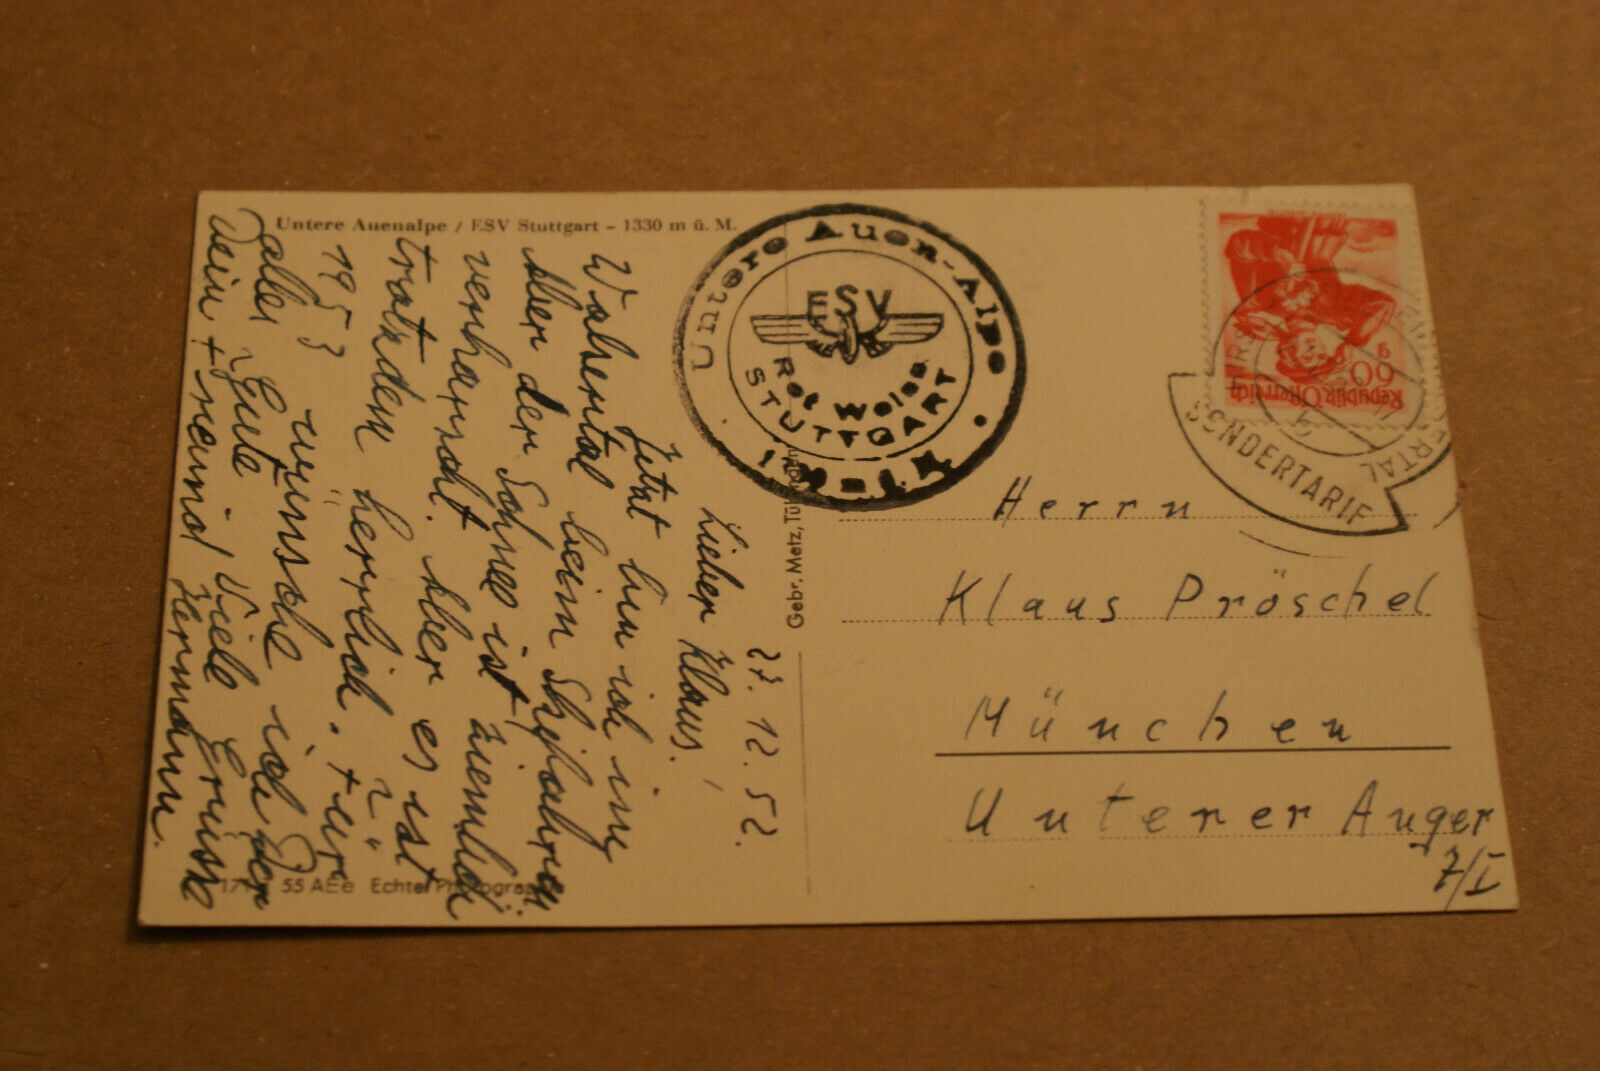 Untere Auenalpe / ESV Stuttgart - 1330 m ü. M.
27. 12. 52.
Lieber Klaus!
Jetzt bin ich im
Walsertal beim Schifahren.
Aber der Schnee ist ziemlich
verharscht. Aber es ist
trotzdem herrlich. Für
1953 wünsche ich Dir
alles Gute. Viele Grüsse
Dein Freund Hermann.
55 AEe Echte Photographie
Gebr. Metz, Tübingen
Untere Auen-Alpe
ESV
Rot Weiss
STUTTGART
Republik Österreich
60 g
SONDERTARIF
Herrn
Klaus Pröschel
München
Unterer Anger
7/I